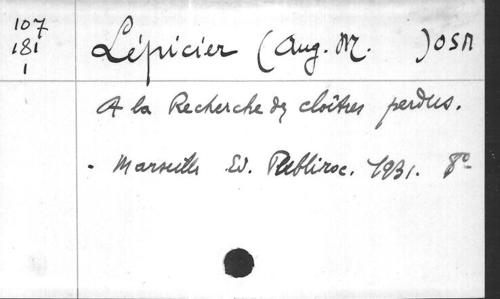 107
181
1
Lépicier (Aug. M. ) OSM
A la Recherche des cloîtres perdus.
- Marseille Ed. Publiroc. 1931. 8º